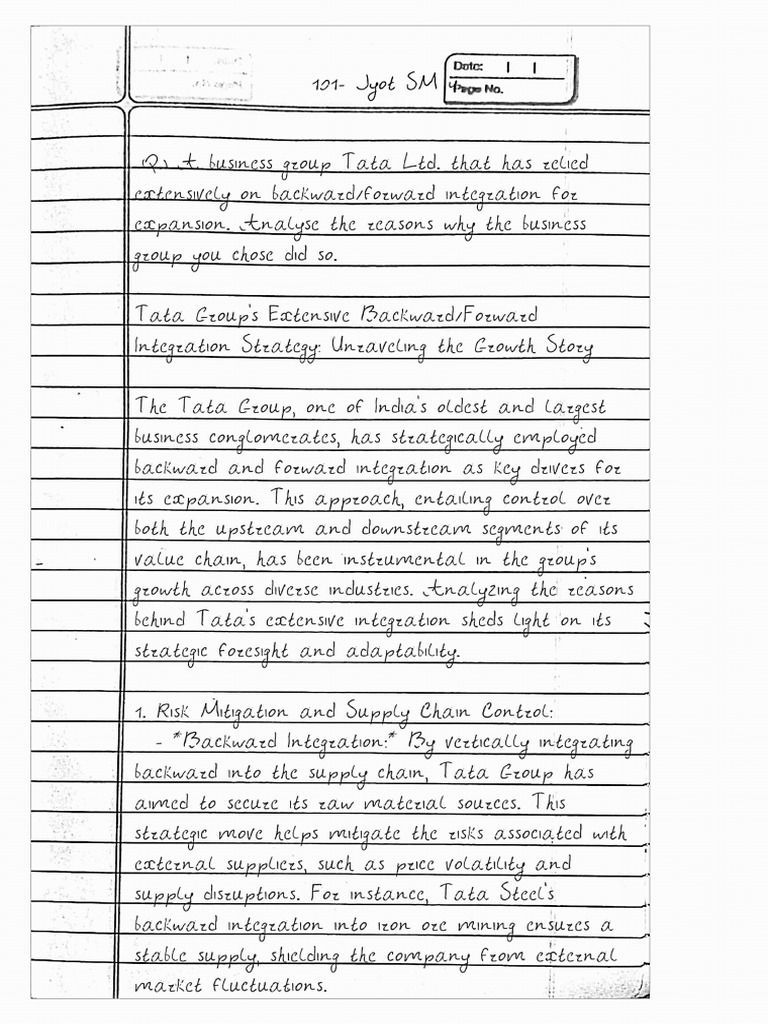 101- Jyot SM
Date:
Page No.
Q) A business group Tata Ltd. that has relied
extensively on backward/forward integration for
expansion. Analyse the reasons why the business
group you chose did so.
Tata Group's Extensive Backward/Forward
Integration Strategy: Unraveling the Growth Story
The Tata Group, one of India's oldest and largest
business conglomerates, has strategically employed
backward and forward integration as key drivers for
its expansion. This approach, entailing control over
both the upstream and downstream segments of its
value chain, has been instrumental in the group's
growth across diverse industries. Analyzing the reasons
behind Tata's extensive integration sheds light on its
strategic foresight and adaptability.
1. Risk Mitigation and Supply Chain Control:
- *Backward Integration:* By vertically integrating
backward into the supply chain, Tata Group has
aimed to secure its raw material sources. This
strategic move helps mitigate the risks associated with
external suppliers, such as price volatility and
supply disruptions. For instance, Tata Steel's
backward integration into iron ore mining ensures a
stable supply, shielding the company from external
market fluctuations.